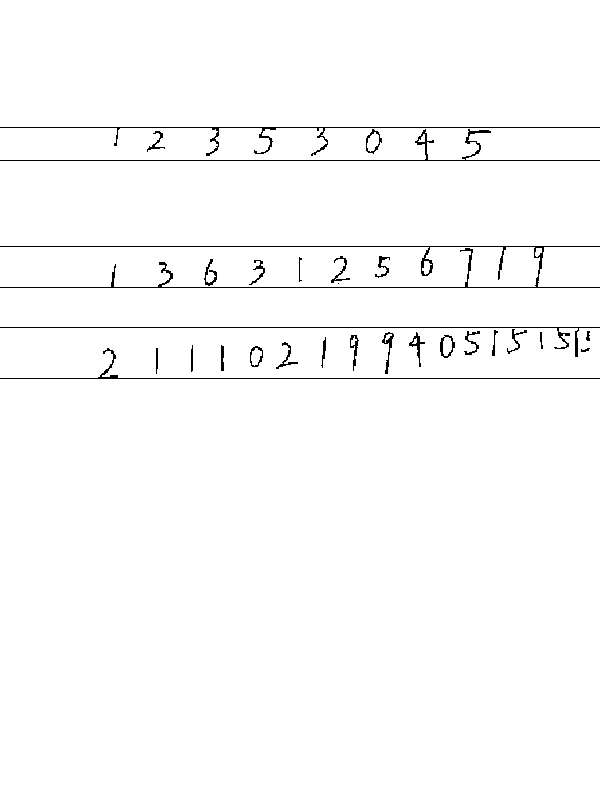 1 2 3 5 3 0 4 5
1 3 6 3 1 2 5 6 7 1 9
2 1 1 1 0 2 1 9 9 4 0 5 1 5 1 5 1